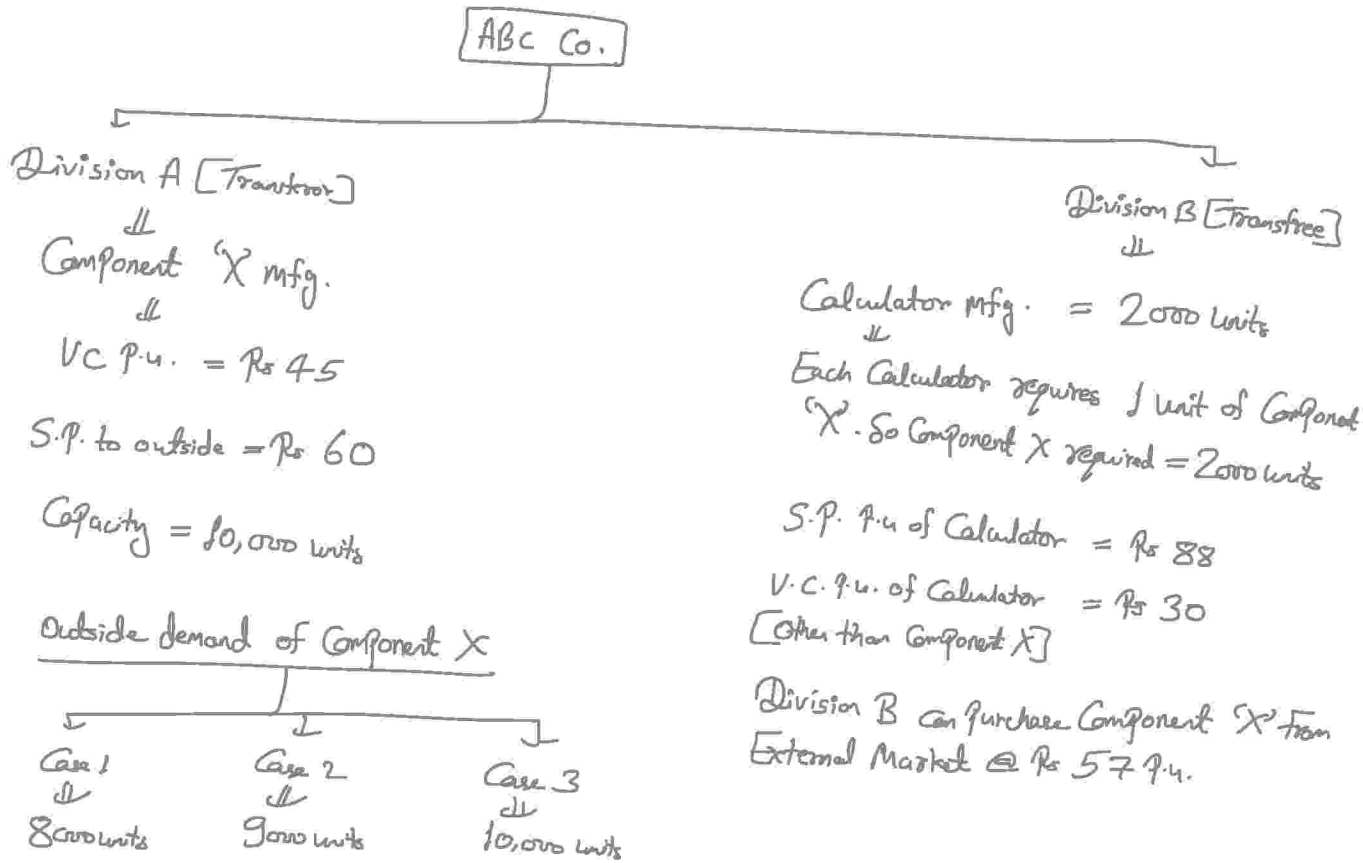 ABC Co.
Division A [Transferor]
Component 'X' mfg.
VC P.u. = Rs 45
S.P. to outside = Rs 60
Capacity = 10,000 units
Outside demand of Component X
Case 1
8000 units
Case 2
9000 units
Case 3
10,000 units
Division B [Transfree]
Calculator mfg. = 2000 units
Each Calculator requires 1 unit of Componet
'X'. So Component X required = 2000 units
S.P. P.u of Calculator = Rs 88
V.C. P.u. of Calculator = Rs 30
[Other than Component X]
Division B can Purchase Component 'X' from
External Market @ Rs 57 P.u.